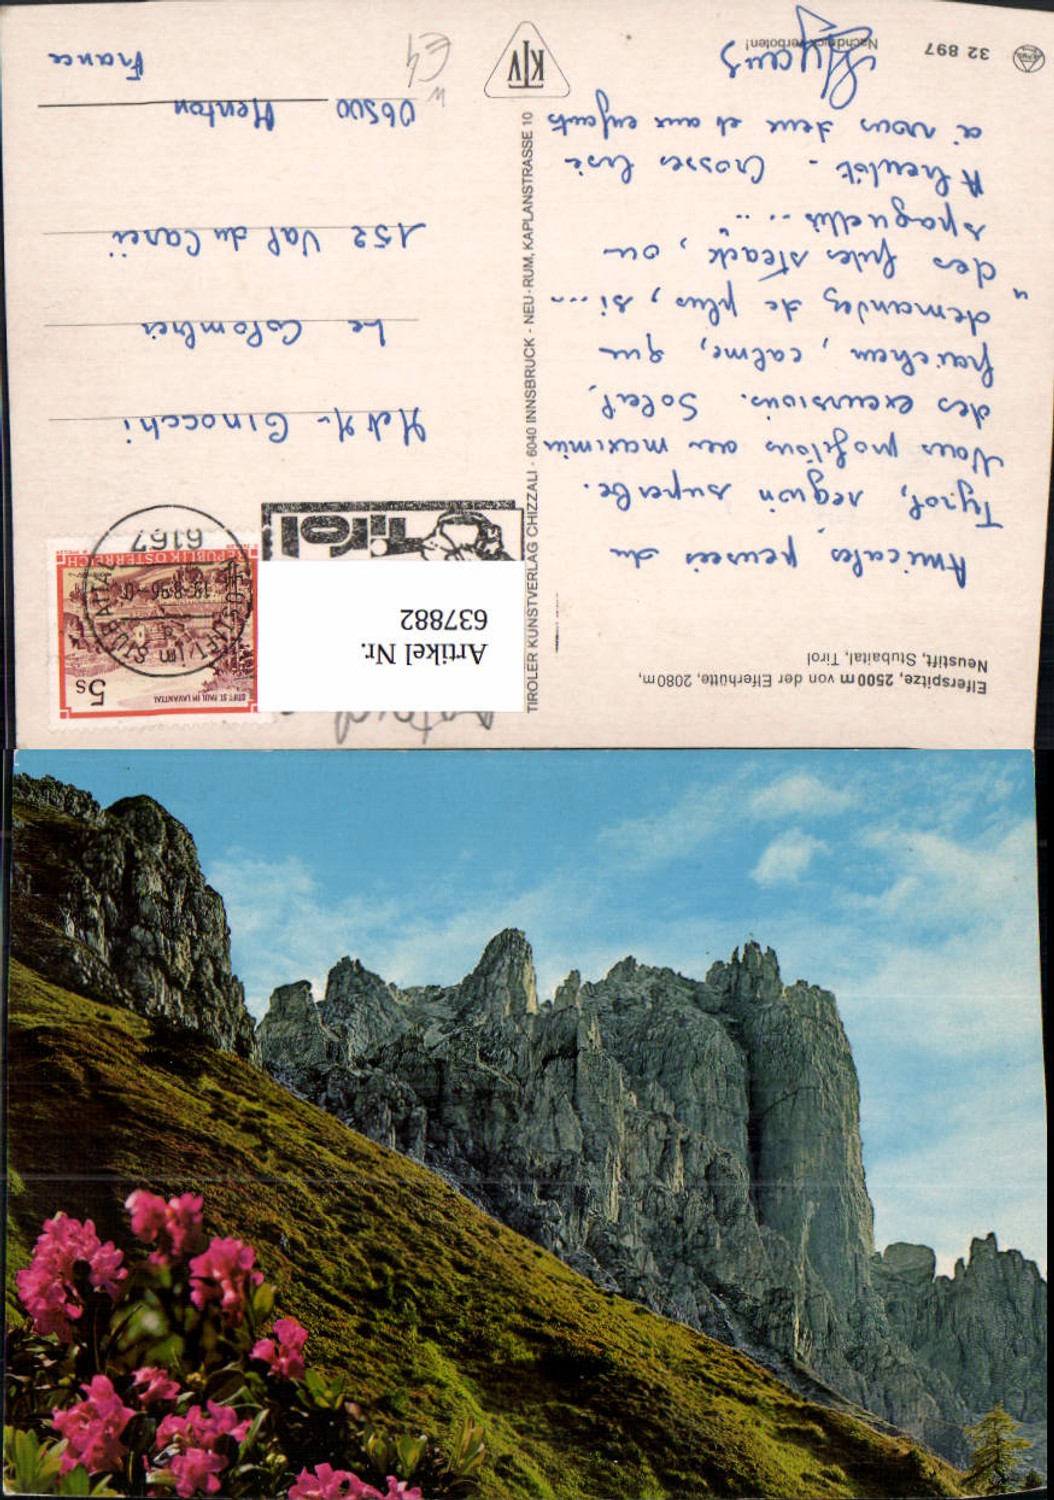 Elferspitze, 2500m von der Elferhütte, 2080m,
Neustift, Stubaital, Tirol
Amicales pensées du
Tyrol, région superbe.
Nous profitons au maximum
des excursions. Soleil,
fraicheur, calme, que
demander de plus, si...
"des frites steack, ou
spaguettis"....
A bientôt - Grosses bises
à vous deux et aux enfants
32 897
Nachdruck verboten!
KTV
TIROLER KUNSTVERLAG CHIZZALI · 6040 INNSBRUCK - NEU-RUM, KAPLANSTRASSE 10
Artikel Nr.
637882
Tirol
6167
18.-8.86-0
NEUSTIFT IM STUBAITAL
5s
STIFT ST. PAUL IM LAVANTTAL
REPUBLIK ÖSTERREICH
M et Mme Ginocchi
Le Colombier
152 Val du Careï
06500 Menton
France